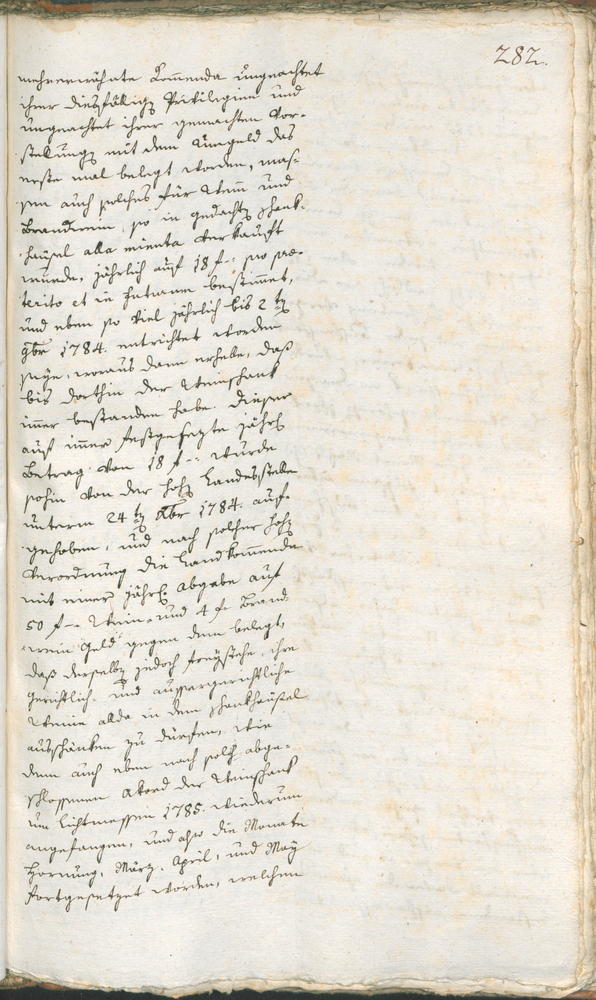 282.
mehrerwähnte Comenda ungeachtet
ihrer diesfällig Privilegien und
ungeachtet ihrer gemachten Vor-
stellung mit dem Umgeld das
erste mal belegt worden, mas-
sen auch solches für Wein und
Brandwein, so in gedacht schank-
häusel alla minuta verkauft
wurde, jährlich auf 18 f. pro prae-
terito et in futurum bestimmet,
und eben so viel jährlich bis 2 t
9br 1784. entrichtet worden
seye, woraus dann erhelle, daß
bis dorthin der Weinschank
immer bestanden habe. Dieser
auf immer festgesezte jährl
Betrag von 18 f. wurde
sohin von der hoh Landesstelle
unterm 24 t Xbr 1784. auf-
gehoben, und nach solcher hoh
Verordnung die Landkommenda
mit einer jährl Abgabe auf
50 f. Wein- und 4 f. Brand-
wein Geld gegen deme belegt,
daß derselb jedoch freystehe, ihre
gerichtlich- und aussergerichtliche
Weine alda in dem schankhäusel
ausschänken zu dürfen, wie
dann auch eben nach solch abge-
schlossenen Akord der Weinschank
um Lichtmessen 1785. wiederum
angefangen, und also die Monate
Hornung, März, April, und May
fortgesetzet worden, welchen